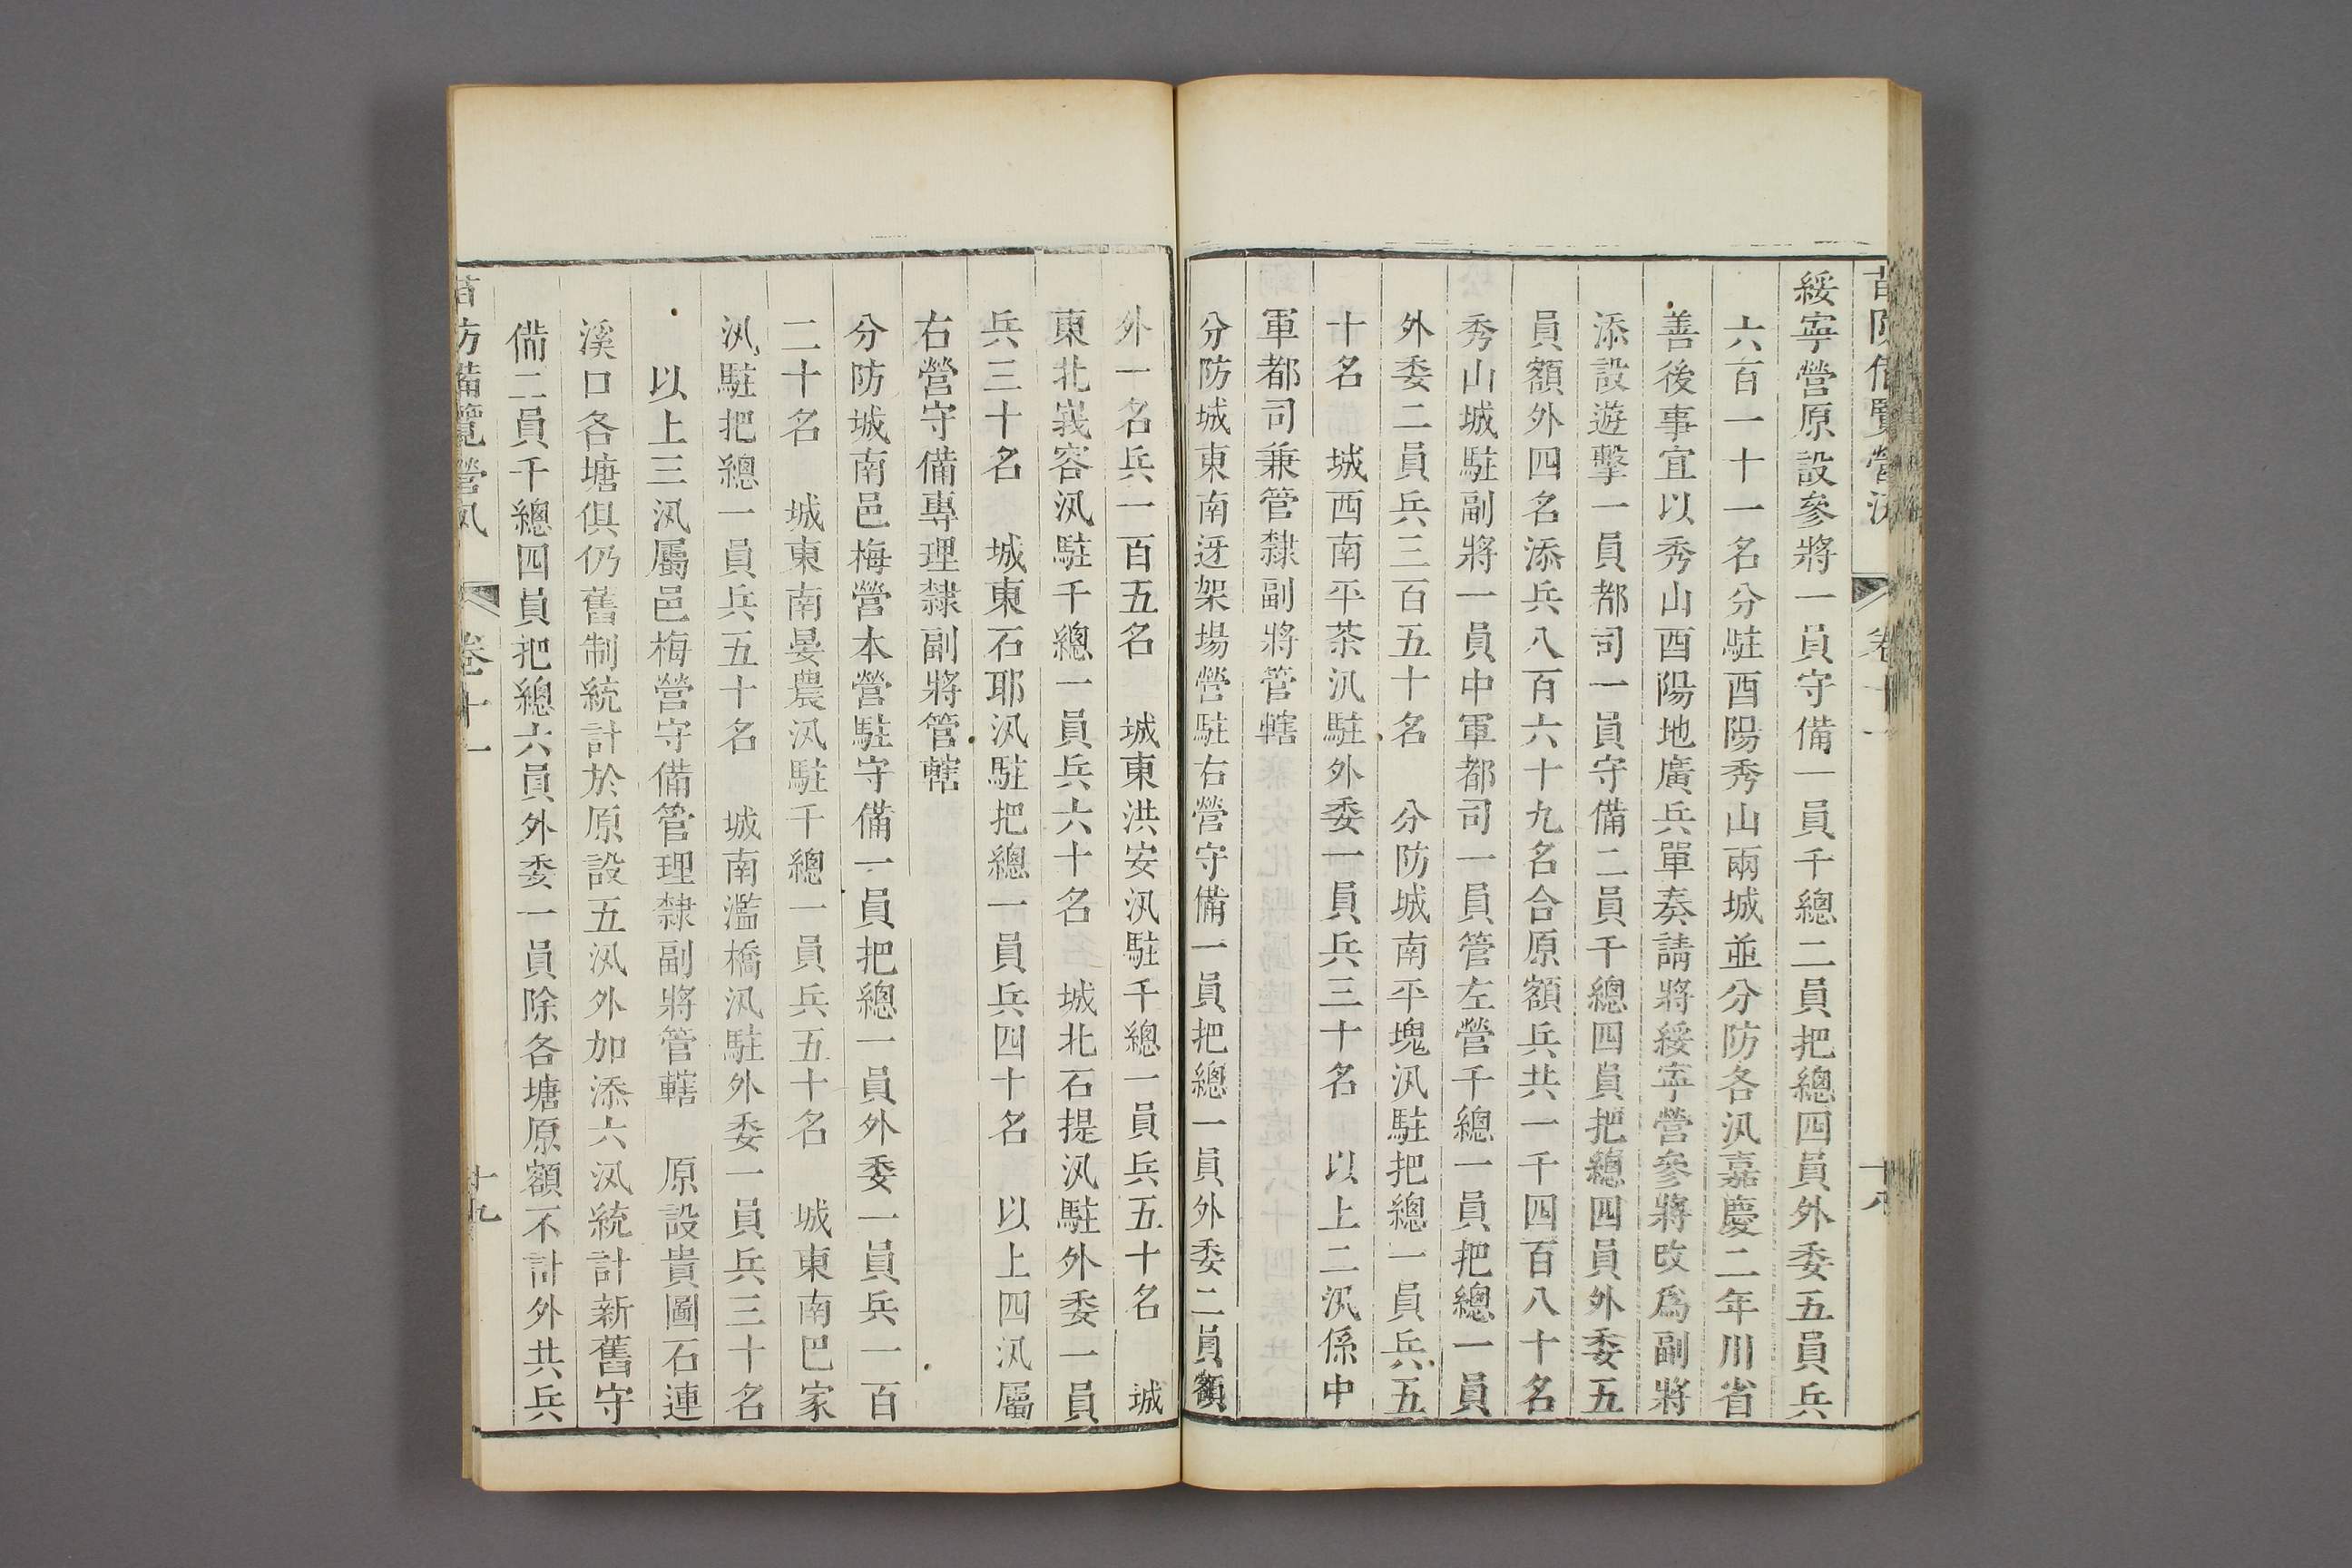 苗防備覽 營汛 卷十一 十八
綏寧營原設參將一員守備一員千總二員把總四員外委五員兵
六百一十一名分駐酉陽秀山兩城並分防各汛嘉慶二年川省
善後事宜以秀山酉陽地廣兵單奏請將綏寧營參將改爲副將
添設遊擊一員都司一員守備二員千總四員把總四員外委五
員額外四名添兵八百六十九名合原額兵共一千四百八十名
秀山城駐副將一員中軍都司一員管左營千總一員把總一員
外委二員兵三百五十名 分防城南平塊汛駐把總一員兵五
十名 城西南平茶汛駐外委一員兵三十名 以上二汛係中
軍都司兼管隸副將管轄
分防城東南迓架場營駐右營守備一員把總一員外委二員額
外一名兵一百五名 城東洪安汛駐千總一員兵五十名 城
東北峩容汛駐千總一員兵六十名 城北石提汛駐外委一員
兵三十名 城東石耶汛駐把總一員兵四十名 以上四汛屬
右營守備專理隸副將管轄
分防城南邑梅營本營駐守備一員把總一員外委一員兵一百
二十名 城東南晏農汛駐千總一員兵五十名 城東南巴家
汛駐把總一員兵五十名 城南濫橋汛駐外委一員兵三十名
以上三汛屬邑梅營守備管理隸副將管轄 原設貴圖石連
溪口各塘俱仍舊制統計於原設五汛外加添六汛統計新舊守
備二員千總四員把總六員外委一員除各塘原額不計外共兵
苗防備覽 營汛 卷十一 十九